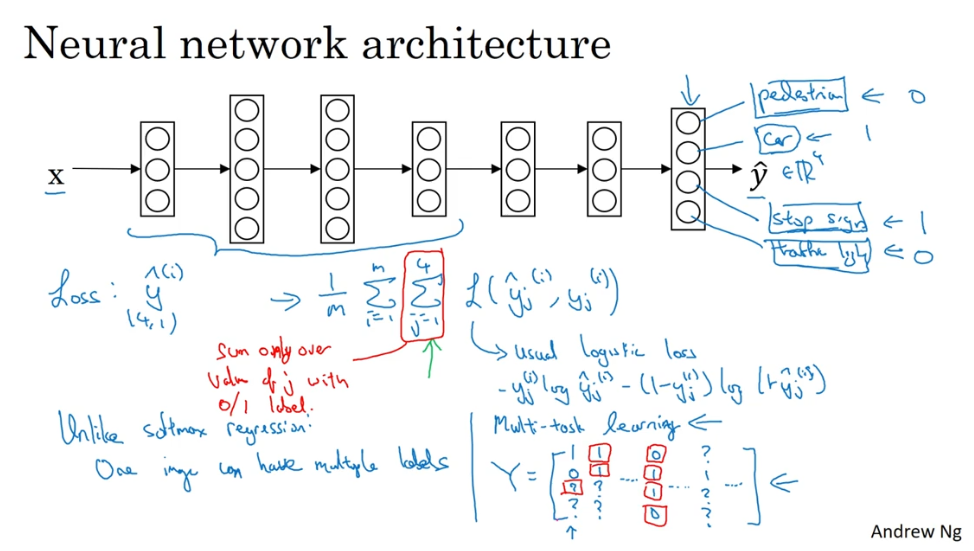 Neural network architecture
pedestrian ← 0
car ← 1
x
ŷ ∈ ℝ⁴
stop sign ← 1
traffic light ← 0
Loss: ŷ^(i) → 1/m Σ_{i=1}^{m} Σ_{j=1}^{4} L(ŷ_j^(i), y_j^(i))
(4,1)
sum only over
value of j with
0/1 label.
usual logistic loss
- y_j^(i) log ŷ_j^(i) - (1-y_j^(i)) log (1-ŷ_j^(i))
Unlike softmax regression:
One image can have multiple labels
Multi-task learning ←
Y = [
1 1 0 ?
0 1 ... 1 ... 1 ...
? ? 1 ?
? ? 0 ?
] ←
Andrew Ng